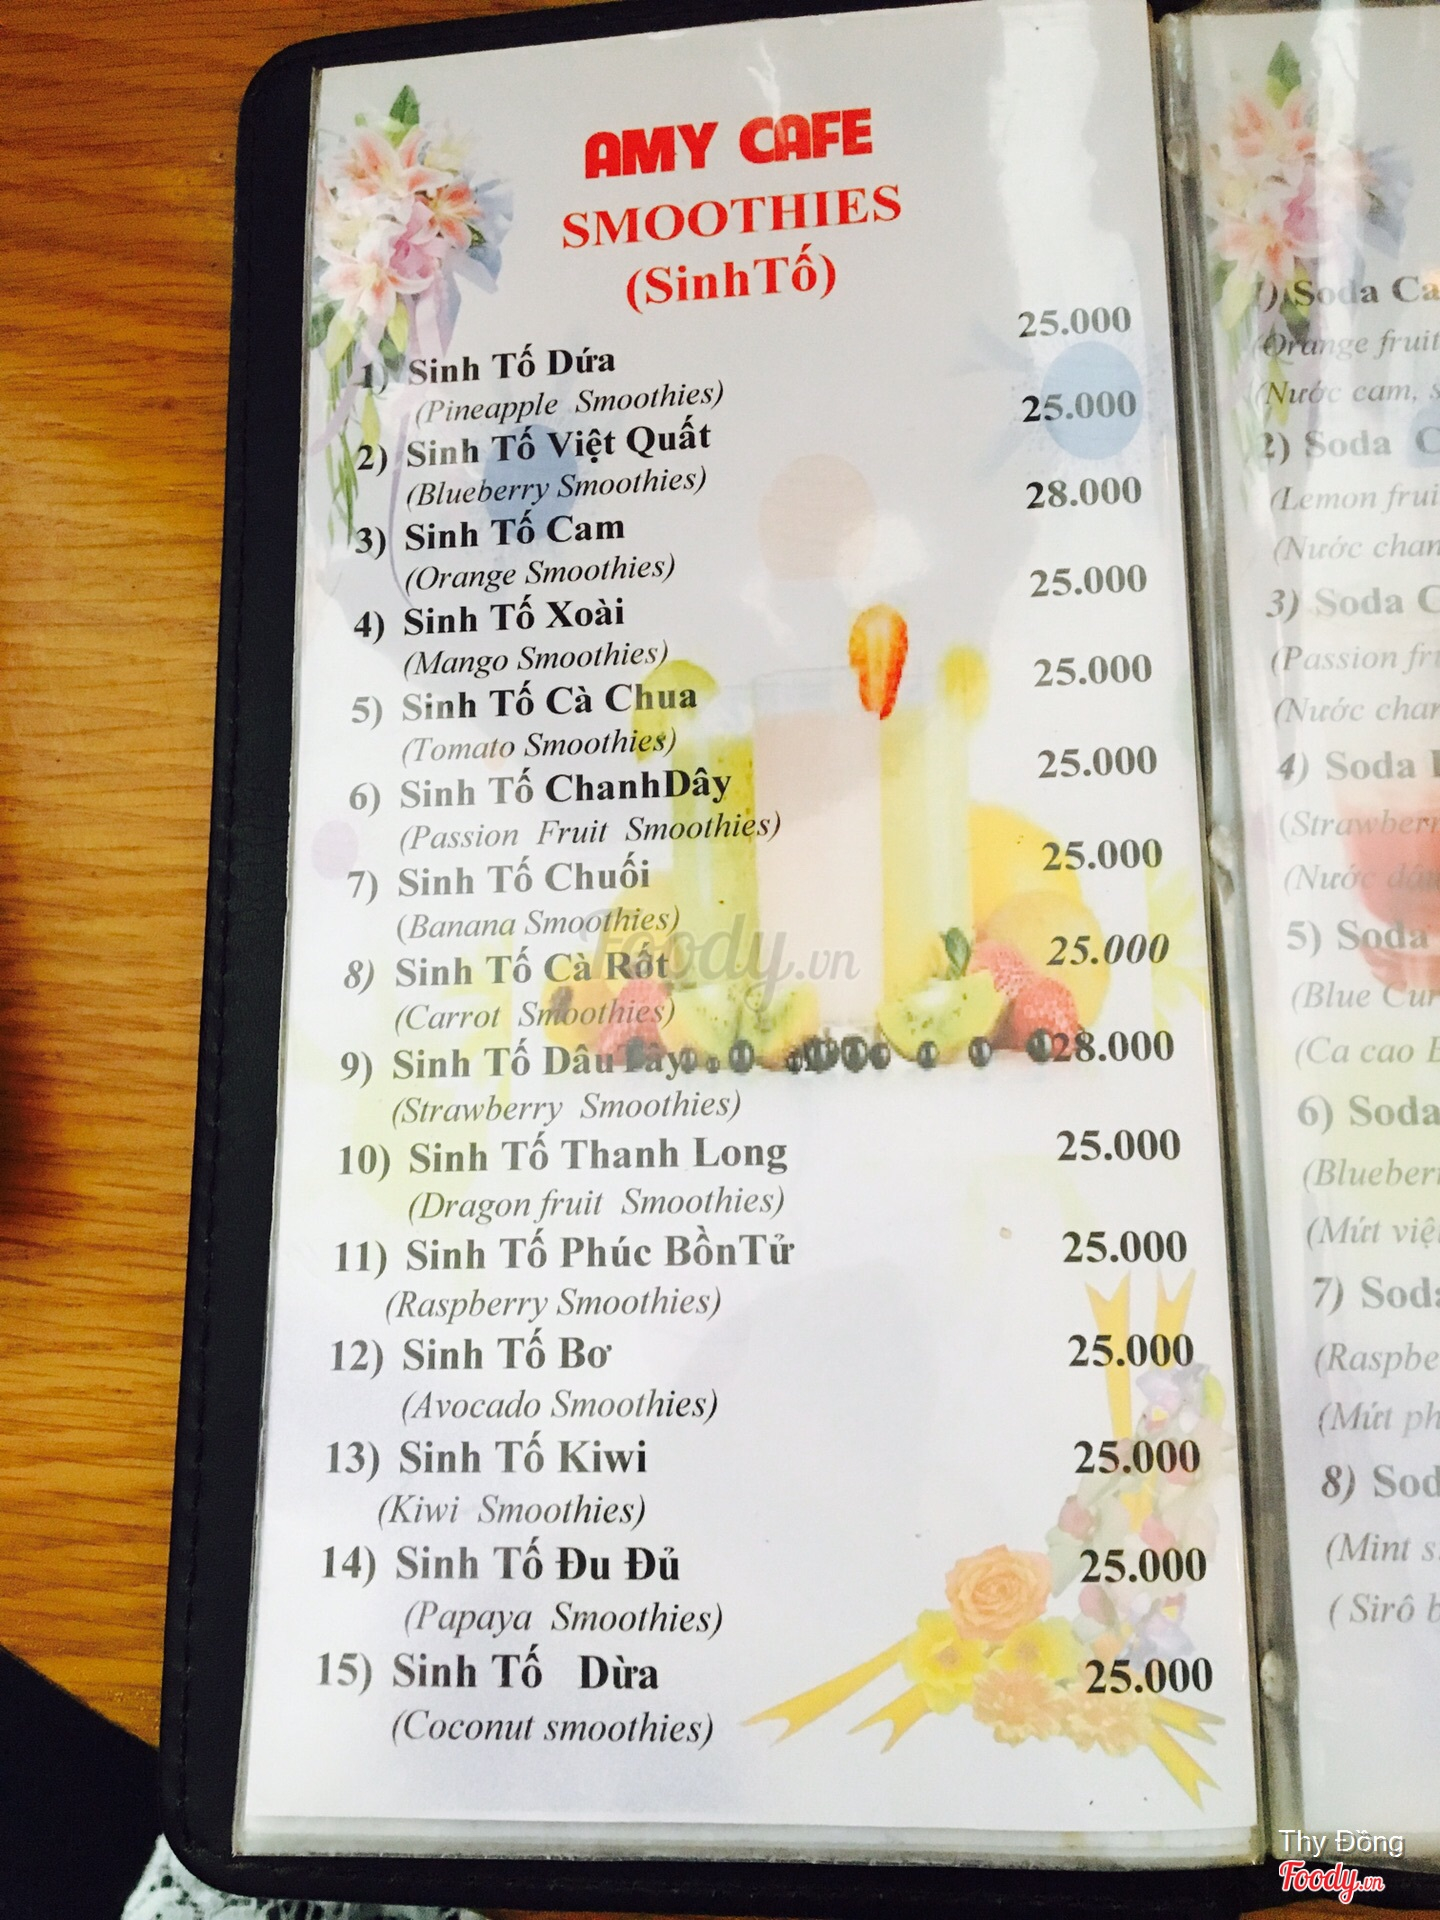 AMY CAFE
SMOOTHIES
(SinhTố)
1) Sinh Tố Dứa 25.000
(Pineapple Smoothies)
2) Sinh Tố Việt Quất 25.000
(Blueberry Smoothies)
3) Sinh Tố Cam 28.000
(Orange Smoothies)
4) Sinh Tố Xoài 25.000
(Mango Smoothies)
5) Sinh Tố Cà Chua 25.000
(Tomato Smoothies)
6) Sinh Tố ChanhDây 25.000
(Passion Fruit Smoothies)
7) Sinh Tố Chuối 25.000
(Banana Smoothies)
8) Sinh Tố Cà Rốt 25.000
(Carrot Smoothies)
9) Sinh Tố DâuTây 28.000
(Strawberry Smoothies)
10) Sinh Tố Thanh Long 25.000
(Dragon fruit Smoothies)
11) Sinh Tố Phúc BồnTử 25.000
(Raspberry Smoothies)
12) Sinh Tố Bơ 25.000
(Avocado Smoothies)
13) Sinh Tố Kiwi 25.000
(Kiwi Smoothies)
14) Sinh Tố Đu Đủ 25.000
(Papaya Smoothies)
15) Sinh Tố Dừa 25.000
(Coconut smoothies)
Foody.vn
1) Soda Ca
Orange fruit
(Nước cam, s
2) Soda C
(Lemon frui
(Nước chan
3) Soda C
(Passion fr
(Nước chan
4) Soda
(Strawberr
(Nước dâu
5) Soda
(Blue Cur
(Ca cao
6) Soda
(Blueber
(Mứt việ
7) Soda
(Raspbe
(Mứt ph
8) Sod
(Mint s
( Sirô b
Thy Đồng
Foody.vn